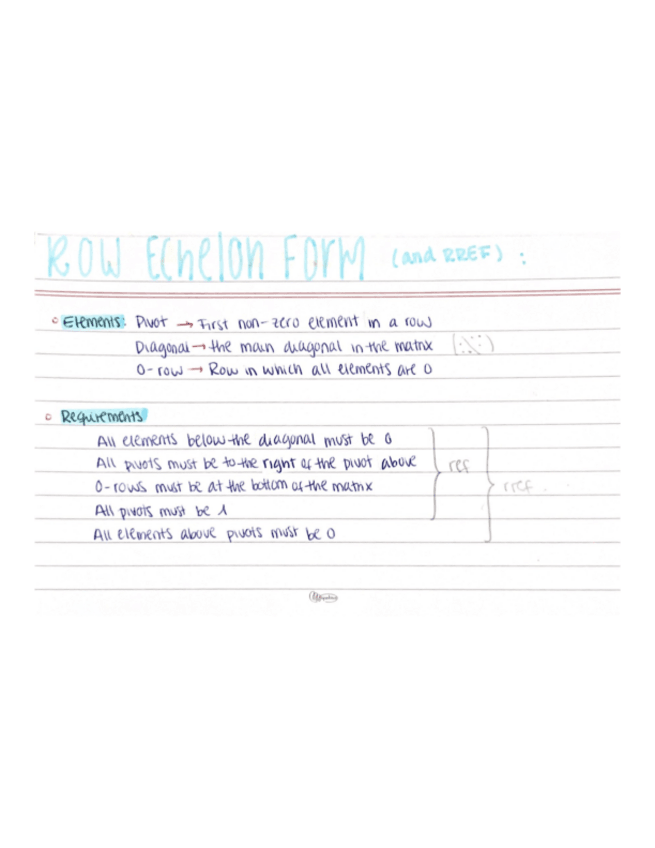 Row Echelon Form (and RREF) :
Elements: Pivot → First non-zero element in a row
Diagonal → the main diagonal in the matrix
0-row → Row in which all elements are 0
Requirements
All elements below the diagonal must be 0
All pivots must be to the right of the pivot above
ref
0-rows must be at the bottom of the matrix
rref
All pivots must be 1
All elements above pivots must be 0